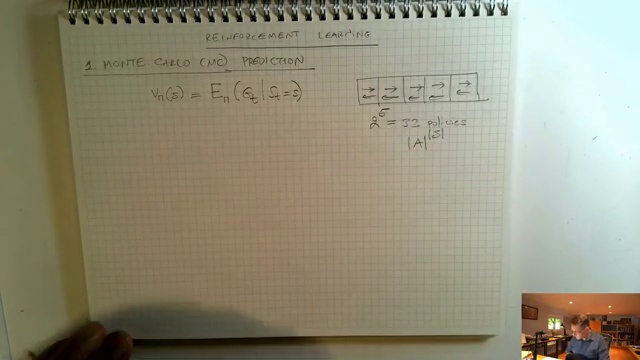 REINFORCEMENT LEARNING
1 MONTE CARLO (MC) PREDICTION
Vπ(s) = Eπ(Gt | St = s)
2^5 = 32 policies
|A|^|S|